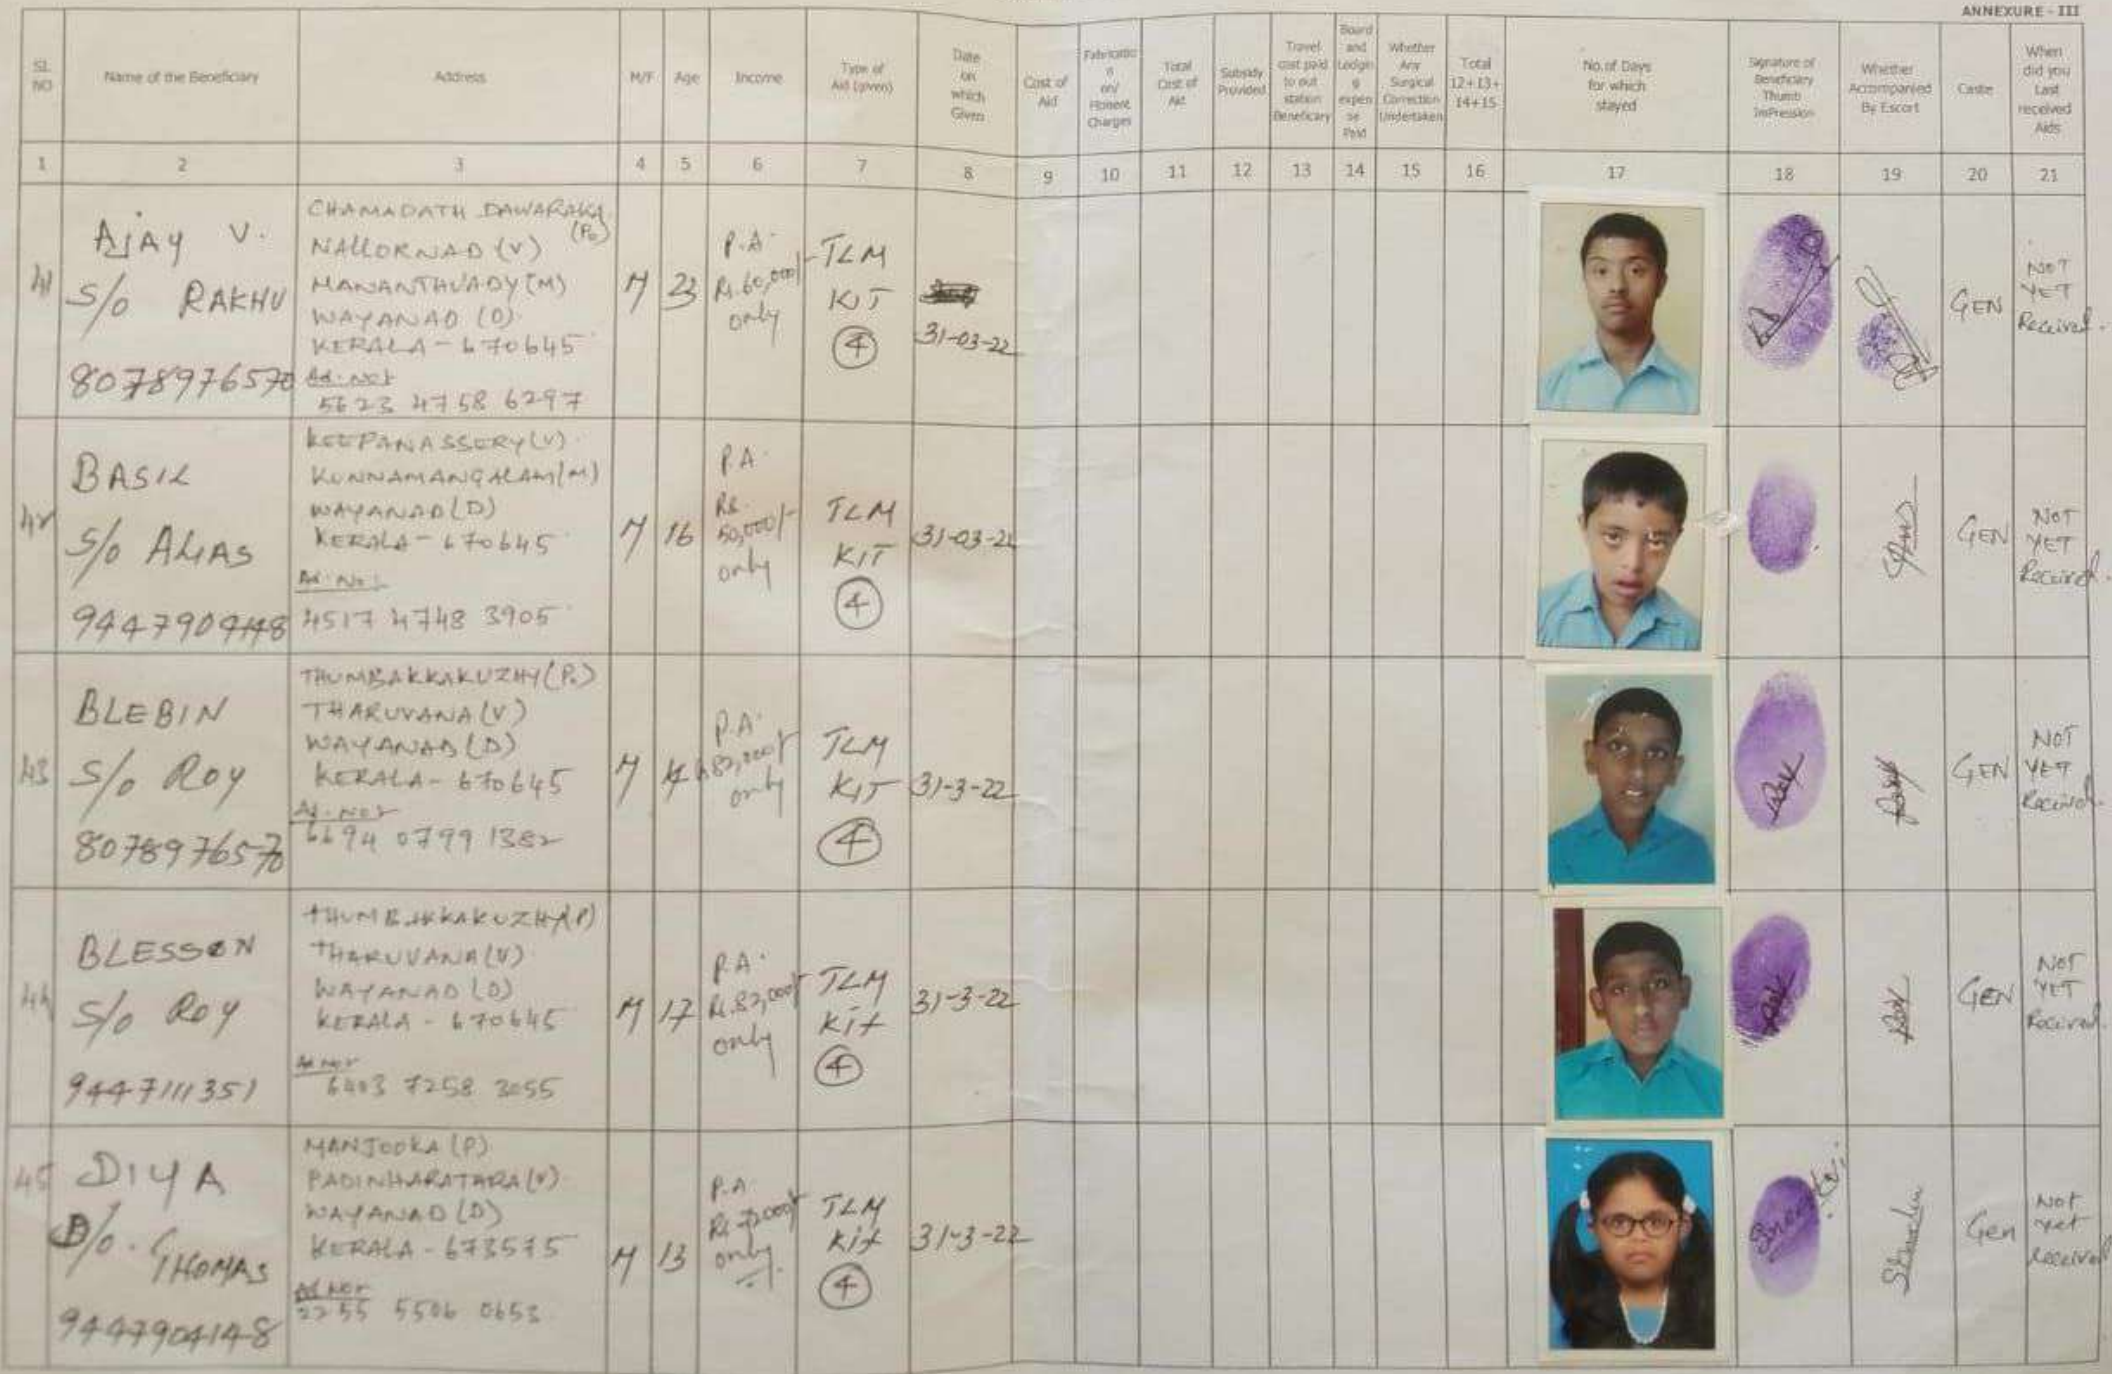 ANNEXURE - III
SL NO
Name of the Beneficiary
Address
M/F
Age
Income
Type of Aid (given)
Date on which Given
Cost of Aid
Fabricatio n on/ Charges
Total Cost of Aid
Subsidy Provided
Travel cost paid to out station Beneficary
Board and Lodgin g expen se Paid
Whether Any Surgical Correction Undertaken
Total 12+13+ 14+15
No. of Days for which stayed
Signature of Beneficiary Thumb ImPression
Whether Accompanied By Escort
Caste
When did you Last received Aids
1 2 3 4 5 6 7 8 9 10 11 12 13 14 15 16 17 18 19 20 21
41
AJAY V.
S/o RAKHU
8078976570
CHAMADATH DAWARAKA (Po)
NALLORNAD (V)
MANANTHVADY (M)
WAYANAD (D)
KERALA - 670645
Ad. No:
5623 4758 6297
M
23
P.A.
Rs. 60,000/-
only
TLM
KIT
4
31-03-22
GEN
NOT
YET
Received.
42
BASIL
S/o ALIAS
KEEPANASSERY (V)
KUNNAMANGALAM (M)
WAYANAD (D)
KERALA - 670645
Ad. No:
4517 4748 3905
M
16
P.A.
Rs.
50,000/-
only
TLM
KIT
4
GEN
NOT
YET
Received.
43
BLEBIN
S/o Roy
8078976570
THUMBAKKAKUZHY (Po)
THARUVANA (V)
WAYANAD (D)
KERALA - 670645
Ad. No:
6694 0799 1382
M
P.A.
only
TLM
KIT
4
31-3-22
GEN
NOT
YET
Received.
44
BLESSON
S/o Roy
9447111351
THUMBAKKAKUZHY (P)
THARUVANA (V)
WAYANAD (D)
KERALA - 670645
Ad No:
6403 7258 3055
M
17
P.A.
Rs. 82,000/-
only
TLM
Kit
4
31-3-22
GEN
NOT
YET
Received.
45
DIYA
D/o. THOMAS
9447904148
MANJOOKA (P)
PADINHARATHARA (V)
WAYANAD (D)
KERALA - 673575
Ad No:
2255 5506 0653
M
13
P.A.
only
TLM
Kit
4
31-3-22
Gen
Not
yet
Received